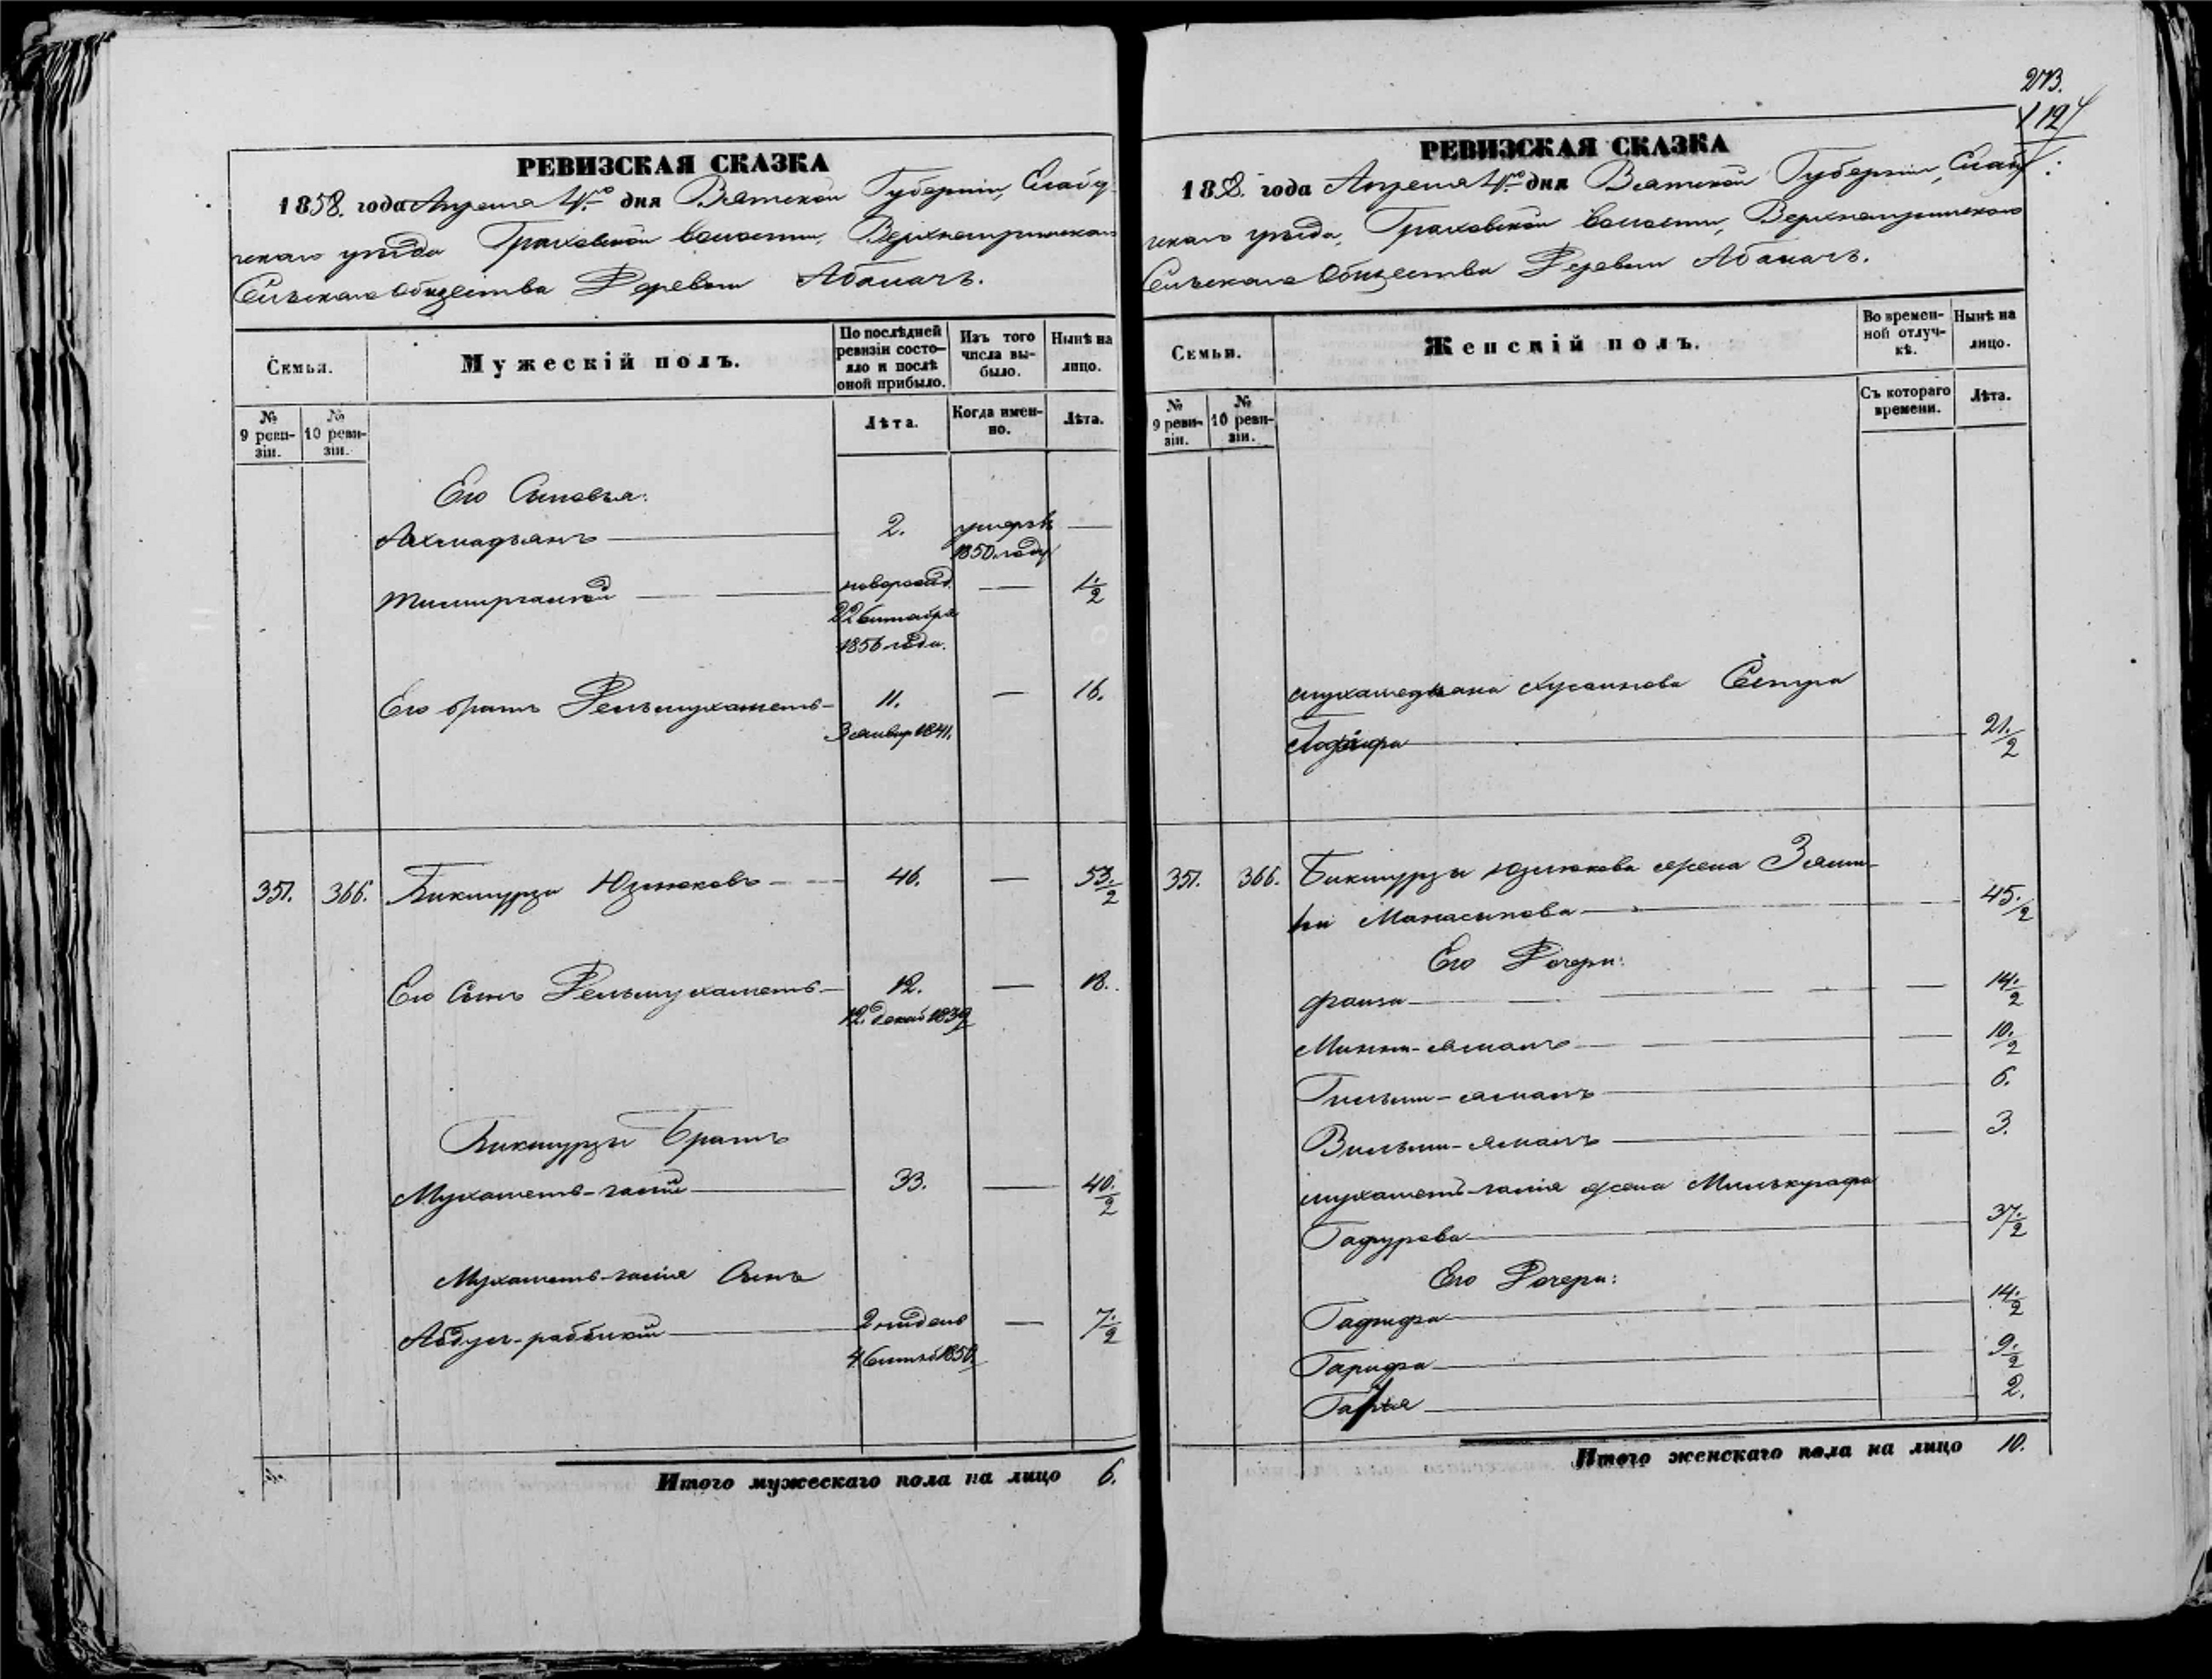 РЕВИЗСКАЯ СКАЗКА
1858. года Апреля 4го дня Вятской Губернiи, Елабу-
жскаго уѣзда Граховской волости,
Сельскаго Общества Деревни Абалачъ.
Семья.
Мужескiй полъ.
По послѣдней ревизiи состо-яло и послѣ оной прибыло.
Изъ того числа вы-было.
Нынѣ на лицо.
№ 9 реви-зiи.
№ 10 реви-зiи.
Лѣта.
Когда имен-но.
Лѣта.
Его Сыновья:
Ахмадьянъ 2. умеръ —
1850 году
новорожд. — 1 1/2
22 Сентября
1856 года.
Его братъ Дельмухаметъ 11. — 16.
3 январ 1841.
351. 366. Бикмурза Юзлюковъ 46. — 53 1/2
Его Сынъ Дельмухаметъ 12. — 18.
12. Декаб 1839
Бикмурзы Братъ
Мухаметъ-галiй 33. — 40 1/2
Мухаметъ-галiя Сынъ
2 недель — 7 1/2
4 Сентяб 1850
Итого мужескаго пола на лицо 6.
273.
112
РЕВИЗСКАЯ СКАЗКА
1858. года Апреля 4го дня Вятской Губернiи, Елабу-
жскаго уѣзда, Граховской волости,
Сельскаго Общества Деревни Абалачъ.
Семьи.
Женскiй полъ.
Во времен-ной отлуч-кѣ.
Нынѣ на лицо.
№ 9 реви-зiи.
№ 10 реви-зiи.
Съ котораго времени.
Лѣта.
Мухамедьяна Хусаинова Сестра
21 1/2
351. 366. Бикмурзы Юзлюкова жена
Манасыпова 45 1/2
Его Дочери:
Фаиза — 14 1/2
Минни-ямалъ — 10 1/2
Гильми-ямалъ 6.
Вильми-ямалъ — 3.
Мухаметъ-галiя жена
Гафурова 37 1/2
Его Дочери:
Гафифа 14 1/2
Гарифа 9 1/2
2.
Итого женскаго пола на лицо 10.